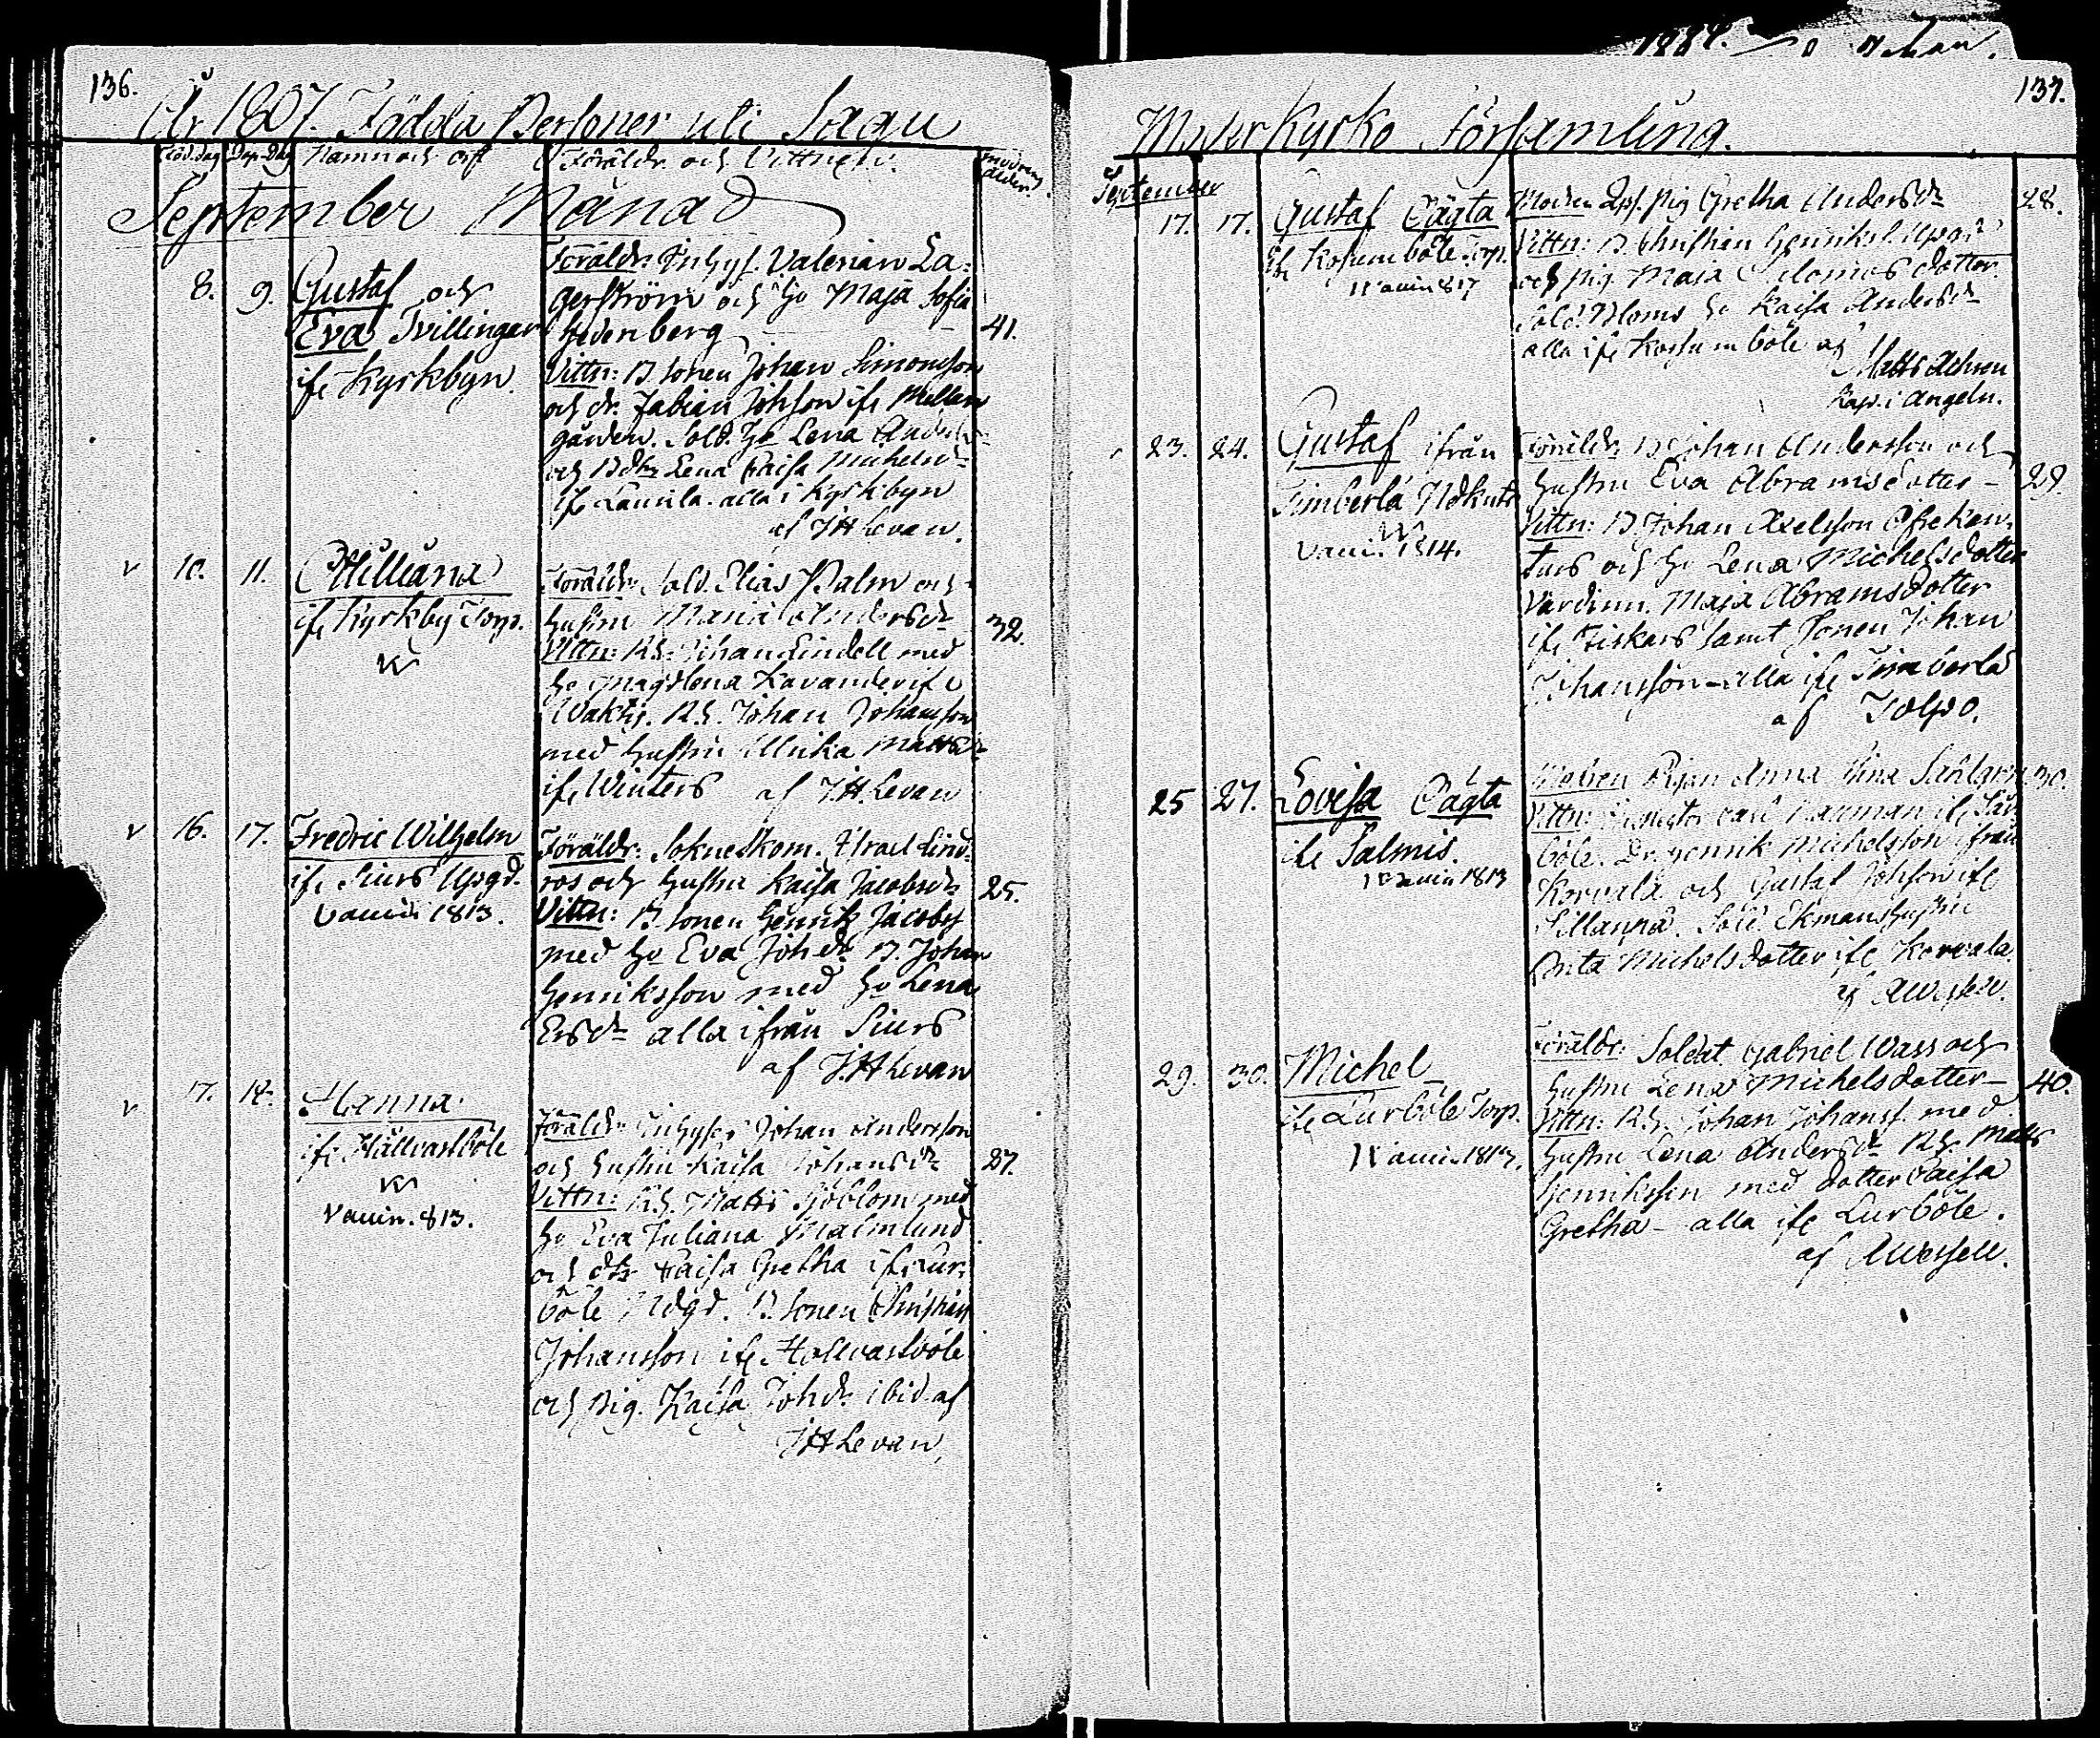 136.
År 1807. Födda Personer uti Sagu
Föd. dag Döp. Dag Namn och ort Föräldr. och Vittnen. modrens ålder.
September Månad
8. 9. Gustaf och
Eva Tvillingar
ifr Kyrkbyn
Föräldr: Inhys. Valerian La=
gerström och Hu Maja Sofia
Hedenberg 41.
Vittn: B sonen Johan Simonsson
och dr. Fabian Johsson ifr Mellan
gården. Sold. Hu Lena Anders
och Bdtr Lena Caisa Michelsd
ifr Laurila. alla i Kyrkbyn
af JH Levan.
v 10. 11. Ulliana
ifr Kyrkby Torp.
Föräldr: Sold. Elias Palm och
hustru Maria Andersdr 32.
Vittn: Rh. Johan Lindell med
Hu Magdlena Kavander ifr
Waktis. Rh. Johan Johansson
med hustru Ulrika Mattsdr
ifr Winters af J.H. Levan
v 16. 17. Fredric Wilhelm
ifr Siurs Upgd.
Vaccin 1813.
Föräldr: Sokneskom. Israel Lind=
ros och hustru Kaisa Jacobsdr 25.
Vittn: B sonen Henrik Jacobss
med Hu Eva Johdr B. Johan
Henriksson med Hu Lena
Ersdr alla ifrån Siurs
af J.H Levan
v 17. 18. Hanna
ifr Hallvastböle
Vaccin. 813.
Föräldr: Inhyses Johan Andersson
och hustru Kaisa Johansdr 27.
Vittn: Rh. Matts Sjöblom med
Hu Eva Juliana Malmlund
och dtr Caisa Gretha ifr Lur=
böle Ndgd. B. sonen Christian
Johansson ifr Hallvastböle
och Pig. Kaisa Johdr ibid. af
JH Levan,
137.
Moder Kyrko Församling.
September
17. 17. Gustaf Oägta
ifr Kosumböle Torp.
Vaccin 817
Modren Qpf. Pig Gretha Andersdr 28.
Vittn: B. Christian Henriks. Upgd
och Pig. Maja Salomosdotter
Sold. Bloms Hu Kaisa Andersdr
alla ifr Kosumböle af
Matts
Kap. i Angeln.
23. 24. Gustaf ifrån
Timberla Ndkuts
Vaccin. 1814.
Föräldr: B Johan Andersson och
hustru Eva Abramsdotter - 29.
Vittn: B. Johan Axelsson
och Hu Lena Michelsdotter
Värdinn. Maja Abramsdotter
ifr Fiskars samt Sonen Johan
Johansson - alla ifr Timberla
af Tolpo.
25 27. Lovisa Oägta
ifr Salmis.
Vaccin 1813
Modren Pigan Anna Stina Sahlgren 30.
Vittn:
böle. Dr. Henrik Michelsson ifrån
Korvala och Gustaf Johsson ifr
Sillanpä. Sold. Ekmans hustru
Anta Michelsdotter ifr Korvala.
af
29. 30. Michel
ifr Lurböle Torp.
Vaccin. 1813.
Föräldr: Soldat Gabriel Wass och
hustru Lena Michelsdotter - 40.
Vittn: Rh. Johan Johanss. med
hustru Lena Andersdr Rh. Matts
Henriksson med dotter Caisa
Gretha - alla ifr Lurböle.
af